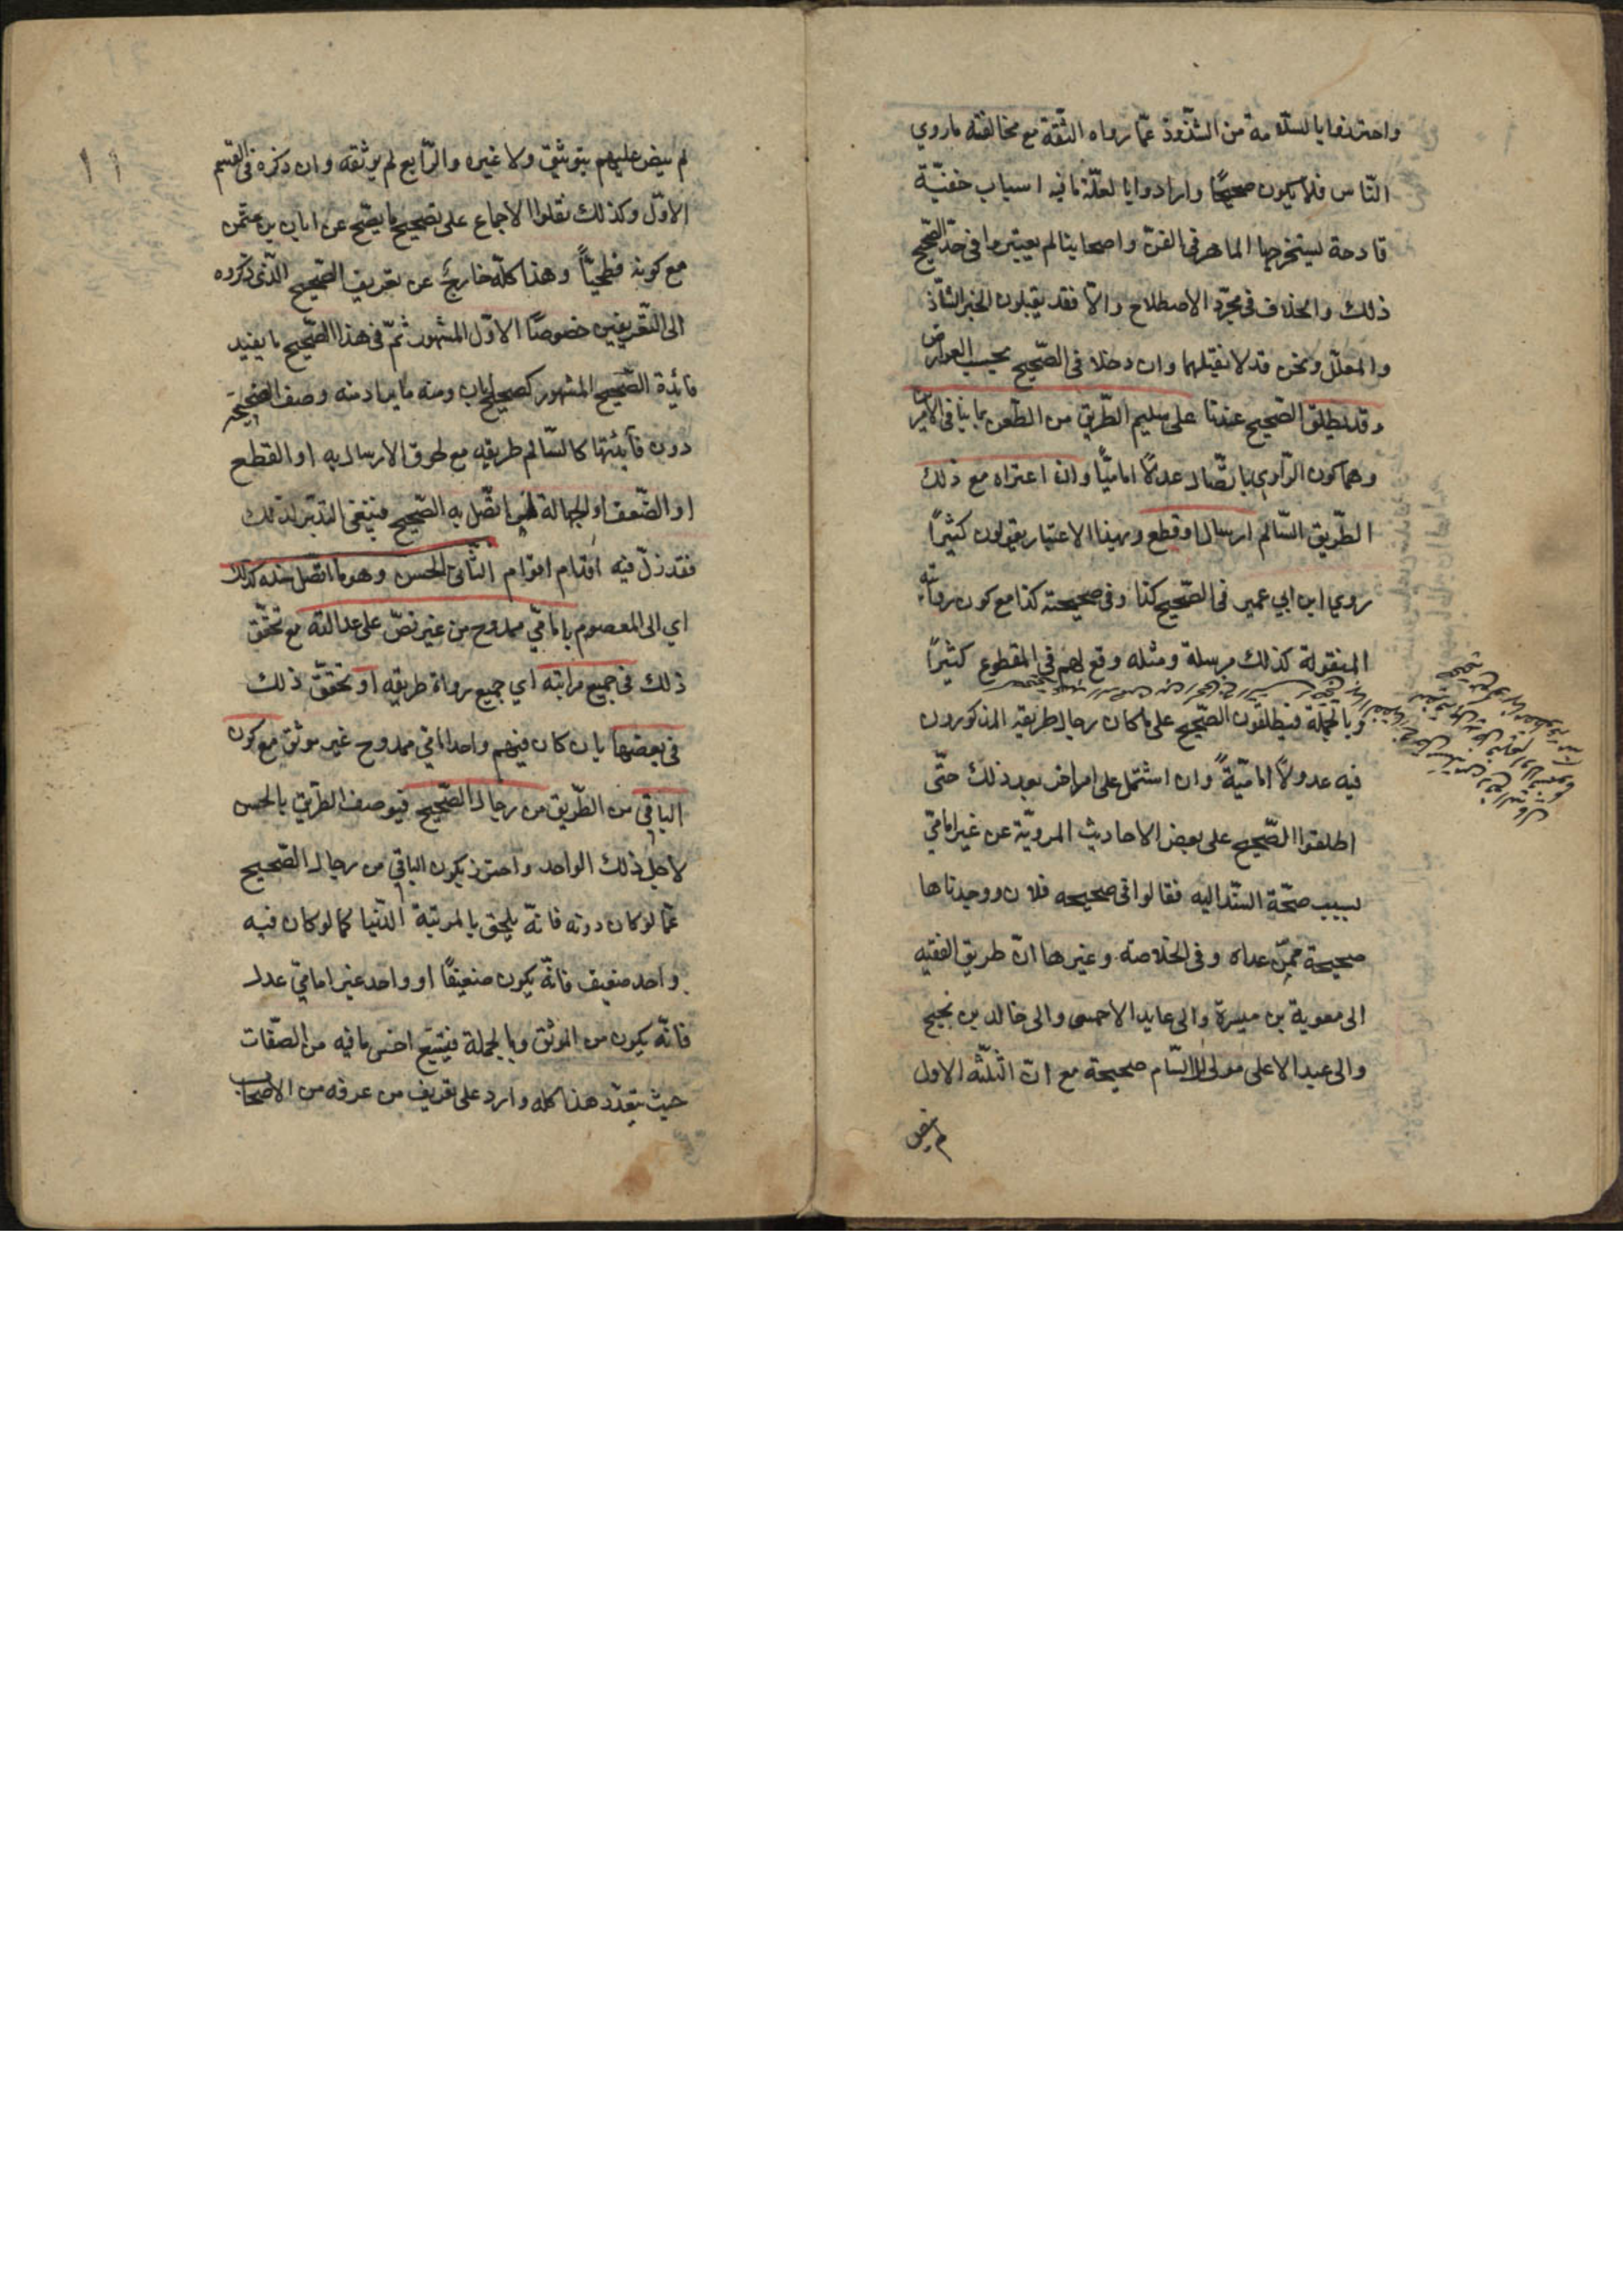 واحترزوا بالسلامة من الشذوذ عمّا رواه الثقة مع مخالفته ما روي
النّاس فلا يكون صحيحًا وارادوا بالعلّة ما فيه اسباب خفيّة
قادحة يستخرجها الماهر فى الفنّ واصحابنا لم يعتبروا فى حدّ الصّحيح
ذلك والخلاف فى مجرّد الاصطلاح والّا فقد يقبلون الخبر الشّاذ
والمعلّل ونحن قد لا نقبلهما وان دخلا فى الصّحيح بحسب العوارض
وقد يطلق الصّحيح عندنا على سليم الطّريق من الطّعن بما ينافى الامرين
وهما كون الرّاوي باتّصال عدلًا اماميًّا وان اعتراه مع ذلك
الطّريق السّالم ارسال او قطع وبهذا الاعتبار يقولون كثيرًا
روي ابن ابي عمير فى الصّحيح كذا وفى صحيحته كذا مع كون روايته
المنقولة كذلك مرسلة ومثله وقع لهم في المقطوع كثيرًا
وبالجملة فيطلقون الصّحيح على ما كان رجال طريقه المذكورون
فيه عدولًا اماميّةً وان اشتمل على امر اخر بعد ذلك حتّى
اطلقوا الصّحيح على بعض الاحاديث المرويّة عن غير امامّي
بسبب صحّة السّند اليه فقالوا فى صحيحه فلان ووجدناها
صحيحة بمن عداه وفى الخلاصة وغيرها انّ طريق الفقيه
الى معوية بن ميسرة والى عايد الاحمسى والى خالد بن نجيح
والى عبد الاعلى مولى ال سّام صحيحة مع انّ الثّلثه الاول
لم ينص
١١
لم ينص عليهم بتوثيق ولا غيره والرّابع لم يوثقه وان ذكره فى القسم
الاوّل وكذلك نقلوا الاجماع على تصحيح ما يصّح عن ابان بن عثمن
مع كونه فطحيًّا وهذا كلّه خارج عن تعريف الصّحيح الّذى ذكروه
الى التّعريفين خصوصًا الاوّل المشهور ثمّ فى هذا الصّحيح ما يفيد
فائدة الصّحيح المشهور كصحيح ابان ومنه ما يراد منه وصف الصّحيحة
دون فائدتها كالسّالم طريقه مع لحوق الارسال به او القطع
او الضّعف او الجهالة لمن اتّصل به الصّحيح فينبغى التدبّر لذلك
فقد زلّ فيه اقدام اقوام الثّانى الحسن وهو ما اتّصل سنده كذلك
اي الى المعصوم بامامّي ممدوح من غير نصّ على عدالته مع تحقّق
ذلك فى جميع مراتبه اي جميع رواة طريقه او تحقّق ذلك
فى بعضها بان كان فيهم واحد امامّي ممدوح غير موثق مع كون
الباقي من الطّريق من رجال الصّحيح فيوصف الطّريق بالحسن
لاجل ذلك الواحد واحترز بكون الباقي من رجال الصّحيح
عمّا لو كان دونه فانّه يلحق بالمرتبة الدّنيا كما لو كان فيه
واحد ضعيف فانّه يكون ضعيفًا او واحد غير امامّي عدل
فانّه يكون من الموثّق وبالجملة فيتبع اخس ما فيه من الصّفات
حيث يتعدّد هذا كله وارد على تعريف من عرفه من الاصحاب